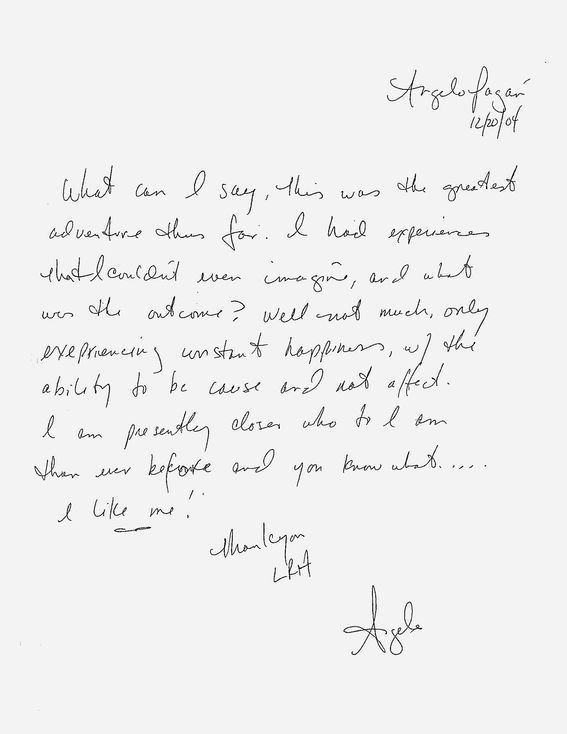 Angelo Pagan
12/20/04
What can I say, this was the greatest
adventure thus far. I had experiences
that I couldn't even imagine, and what
was the outcome? Well not much, only
exepriencing constant happiness, w/ the
ability to be cause and not affect.
I am presently closer who to I am
than ever before and you know what....
I like me!
Thank you
LRH
Angelo